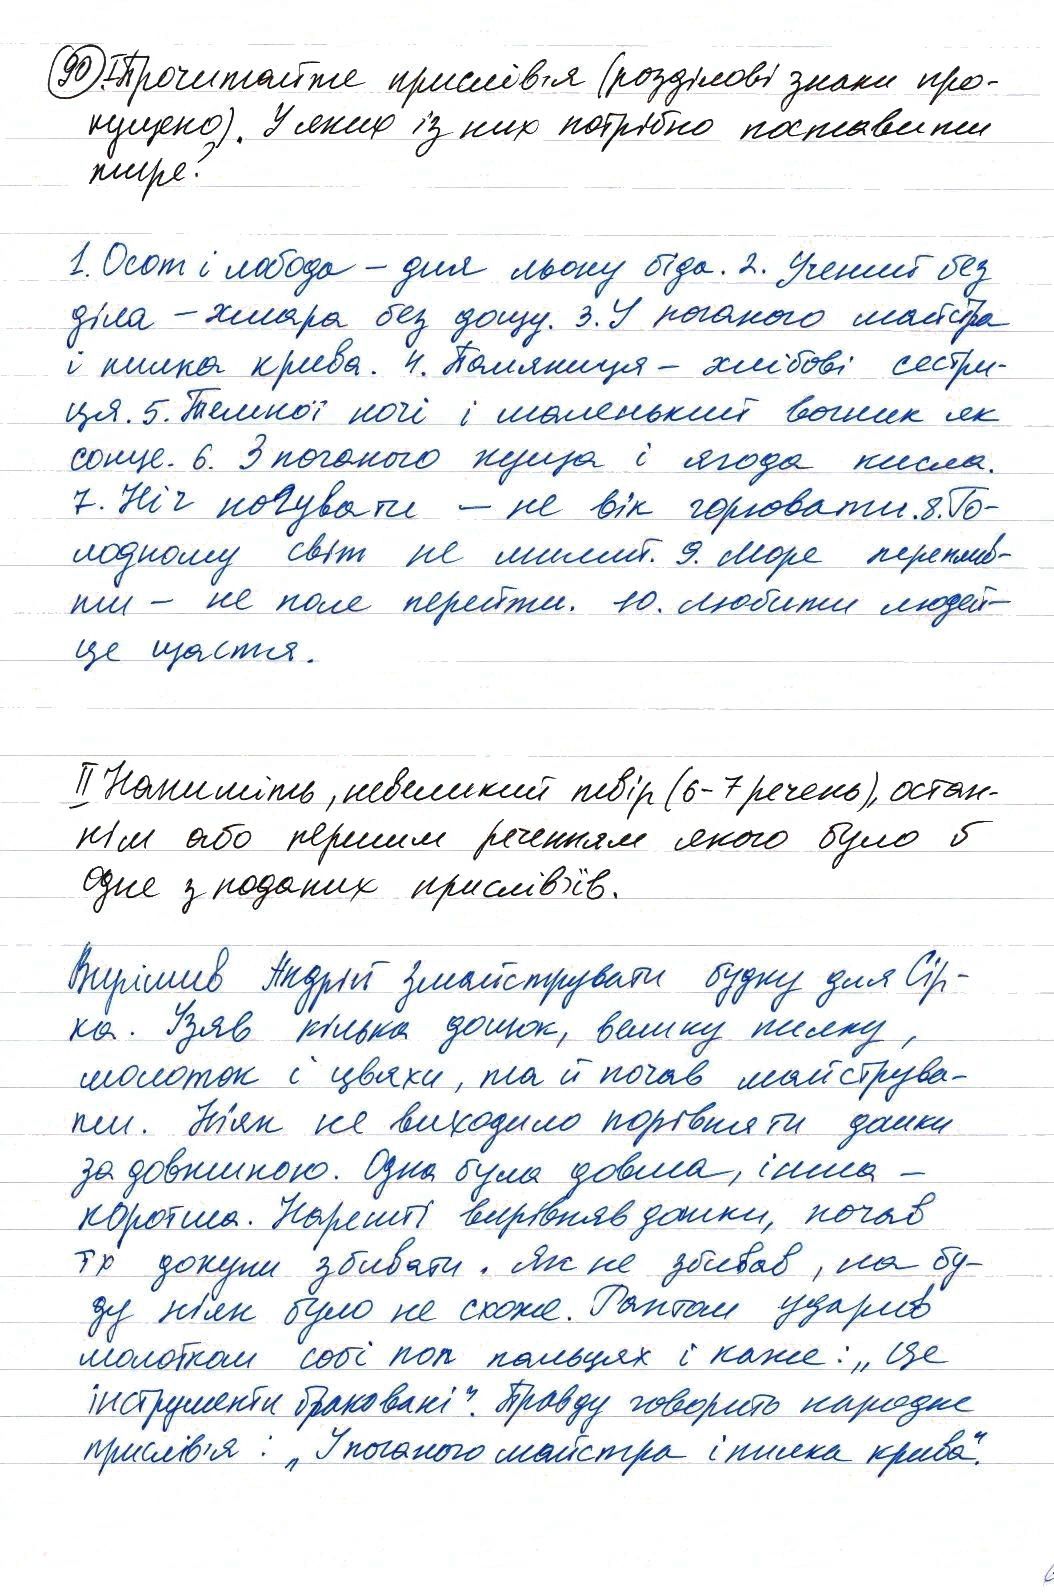 90. I Прочитайте прислів'я (розділові знаки про-
пущено). У яких із них потрібно поставити
тире?
1. Осот і лобода – для льону біда. 2. Учений без
діла – хмара без дощу. 3. У поганого майстра
і пилка крива. 4. Паляниця – хлібові сестри-
ця. 5. Темної ночі і маленький вогник як
сонце. 6. З поганого куща і ягода кисла.
7. Ніч ночувати – не вік горювати. 8. Го-
лодному світ не милий. 9. Море перепливо-
ти – не поле перейти. 10. Любити людей –
це щастя.
II Напишіть, невеликий твір (6-7 речень), остан-
нім або першим реченням якого було б
одне з поданих прислів'їв.
Вирішив Андрій змайструвати будку для Сір-
ка. Узяв кілька дощок, велику пилку,
молоток і цвяхи, та й почав майструва-
ти. Ніяк не виходило порівняти дошки
за довжиною. Одна була довша, інша –
коротша. Нарешті вирівняв дошки, почав
їх докупи збивати. Як не збивав, на бу-
ду ніяк було не схоже. Раптом ударив
молотком собі поп пальцях і каже: „Це
інструменти браковані". Правду говорить народне
прислів'я: „У поганого майстра і пилка крива".